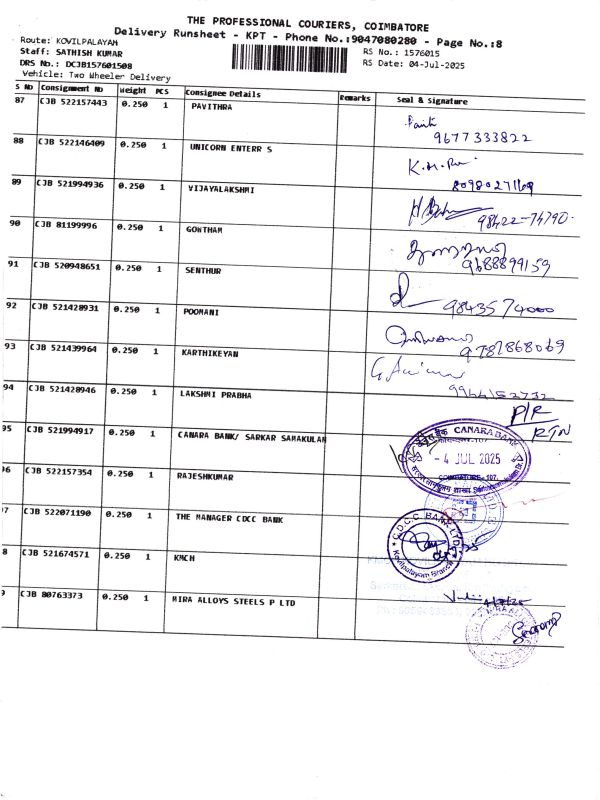 THE PROFESSIONAL COURIERS, COIMBATORE
Delivery Runsheet - KPT - Phone No.:9047080280 - Page No.:8
Route: KOVILPALAYAM
RS No.: 1576015
Staff: SATHISH KUMAR
RS Date: 04-Jul-2025
DRS No.: DCJB157601508
Vehicle: Two Wheeler Delivery
S No Consignment No Weight PCS Consignee Details Remarks Seal & Signature
87 CJB 522157443 0.250 1 PAVITHRA
9677333822
88 CJB 522146409 0.250 1 UNICORN ENTERR S
89 CJB 521994936 0.250 1 VIJAYALAKSHMI
98422-74790
90 CJB 81199996 0.250 1 GOWTHAM
9688899159
91 CJB 520948651 0.250 1 SENTHUR
9843574000
92 CJB 521428931 0.250 1 POOMANI
9787868069
93 CJB 521439964 0.250 1 KARTHIKEYAN
94 CJB 521428946 0.250 1 LAKSHMI PRABHA
P/R
RTN
95 CJB 521994917 0.250 1 CANARA BANK/ SARKAR SAMAKULAM
CANARA BANK
- 4 JUL 2025
COIMBATORE - 107
96 CJB 522157354 0.250 1 RAJESHKUMAR
97 CJB 522071190 0.250 1 THE MANAGER CDCC BANK
C.D.C.C. BANK LTD
Kovilpalayam Branch
98 CJB 521674571 0.250 1 KMCH
4/7/25
99 CJB 80763373 0.250 1 MIRA ALLOYS STEELS P LTD